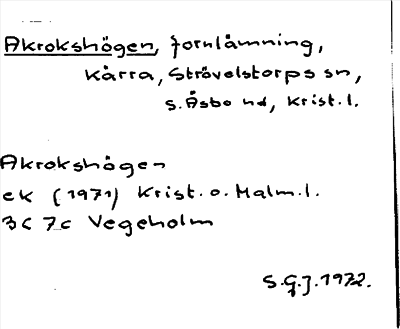 Akrokshögen, fornlämning,
Kärra, Strövelstorps sn,
S. Åsbo hd, Krist. l.
Akrokshögen
ek (1971) Krist. o. Malm. l.
3C 7c Vegeholm
S.G.J. 1972.